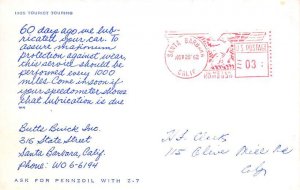 1925 TOURIST TOURING
60 days ago we lub-
ricated your car. To
assure maximum
protection against wear,
this service should be
performed every 1000
miles. Come in soon if
your speedometer shows
that lubrication is due
Butts Buick Inc.
315 State Street
Santa Barbara, Calif.
Phone: WO 6-6194
ASK FOR PENNZOIL WITH Z-7
SANTA BARBARA
CALIF.
U.S. POSTAGE
03
115 Olive Mill Rd
City